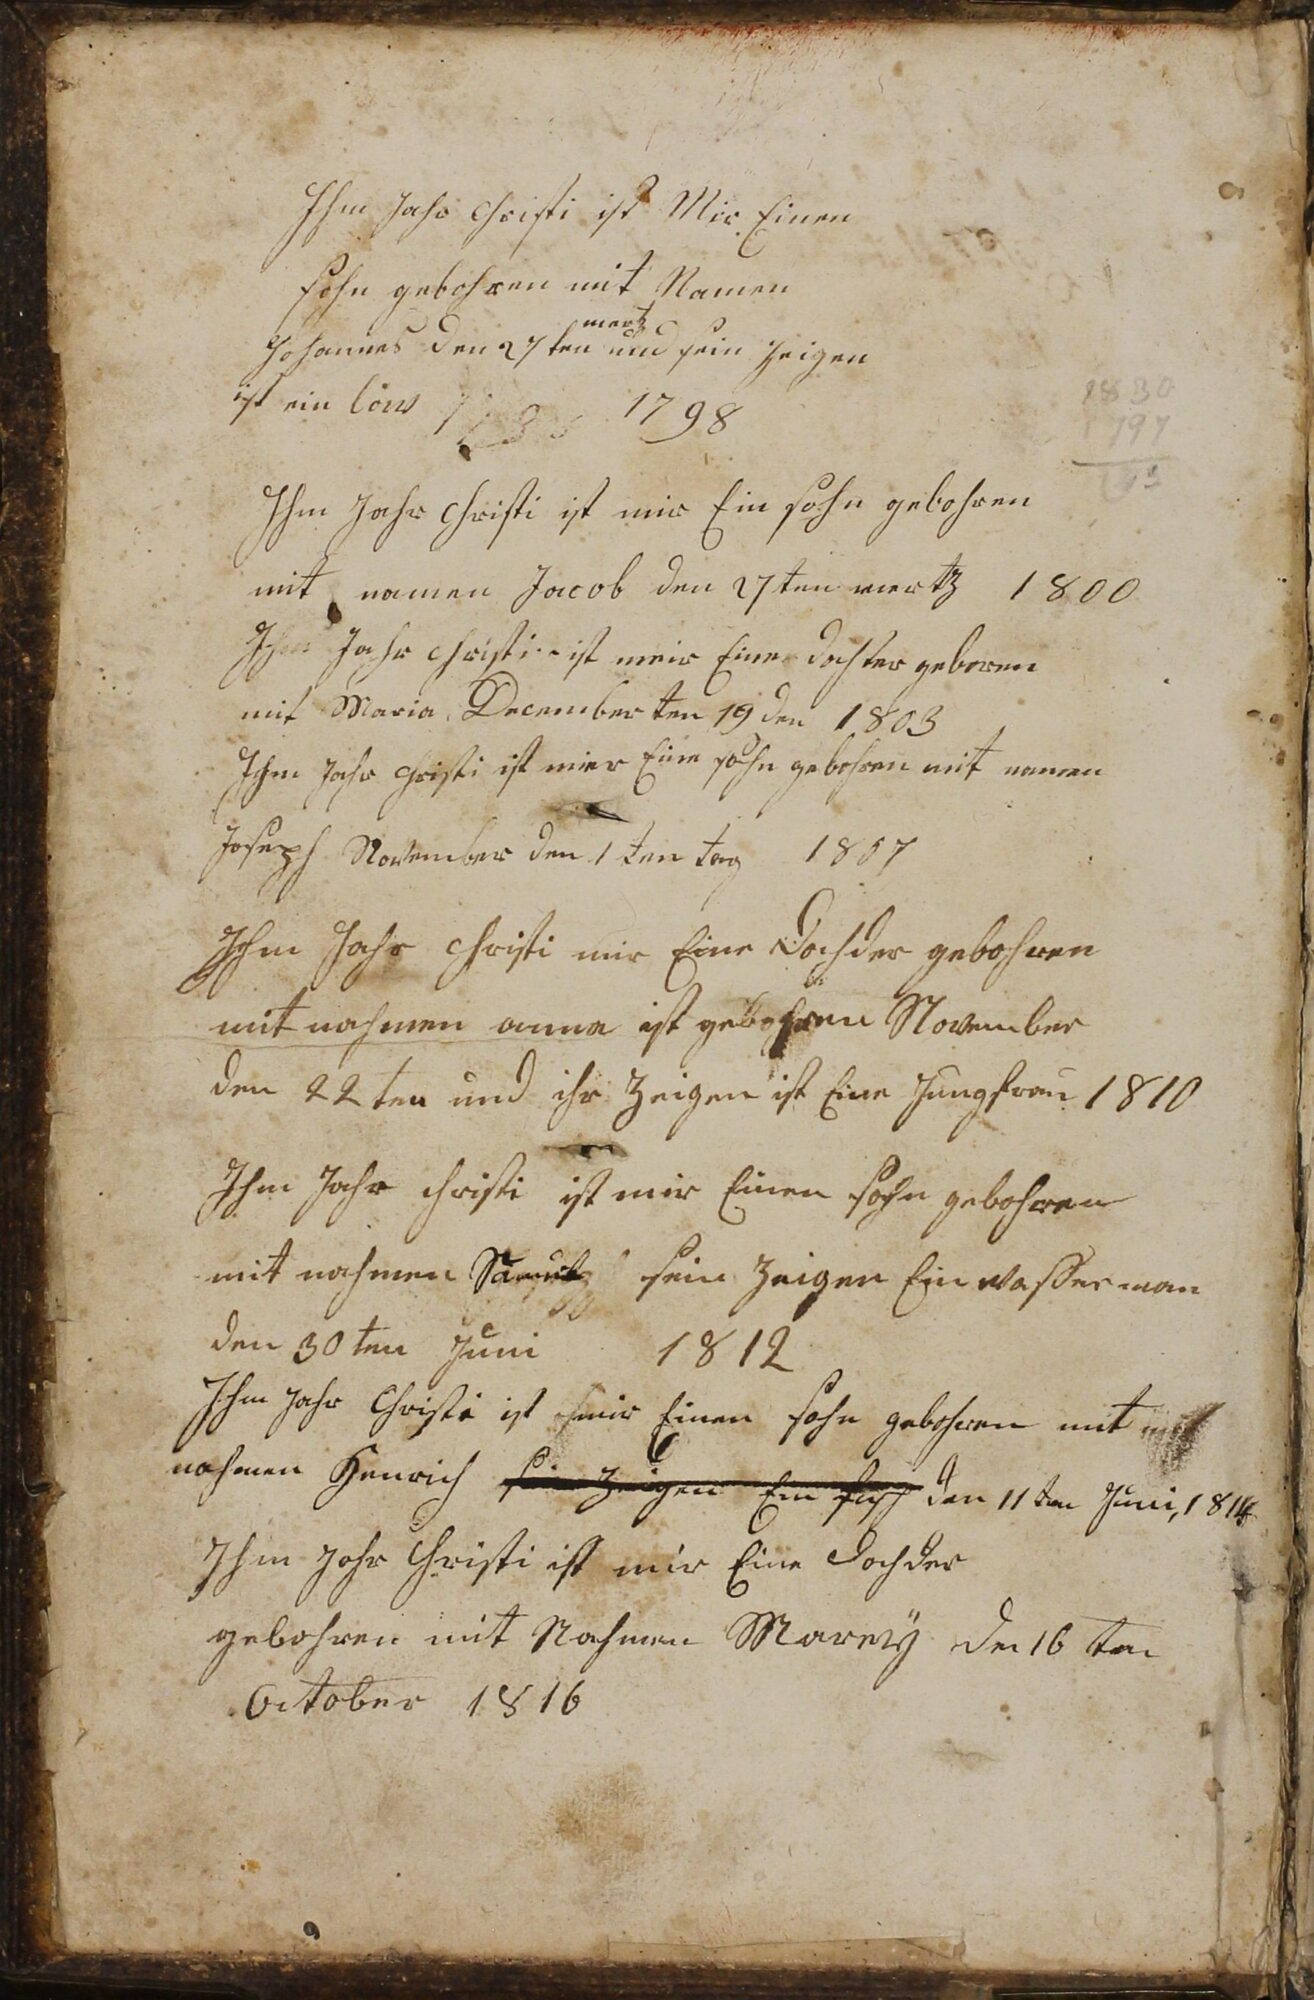 Ihm Jahr Christi ist Mir Einen
sohn gebohren mit Namen
mertz
Johannes den 27ten und sein zeigen
ist ein löw 1798
1830
1797
Ihm Jahr Christi ist mir Ein sohn gebohren
mit namen Jacob den 27ten mertz 1800
Ihm Jahr Christi ist meir Eine dochter geboren
mit Maria December ten 19 den 1803
Ihm Jahr Christi ist mier Eine sohn gebohren mit namen
Joseph November den 1 ten tag 1807
Ihm Jahr Christi mir Eine Dochder gebohren
mit nahmen anna ist gebohren November
den 22ten und ihr zeigen ist Eine Jungfrau 1810
Ihm Jahr Christi ist mir Einen sohn gebohren
mit nahmen sein zeigen Ein wasserman
den 30ten Juni 1812
Ihm Jahr Christi ist mir Einen sohn gebohren mit
nahmen Henrich sein zeigen Ein fisch den 11ten Juni, 1814
Ihm Jahr Christi ist mir Eine Dochder
gebohren mit Nahmen Marey den 16 ten
October 1816